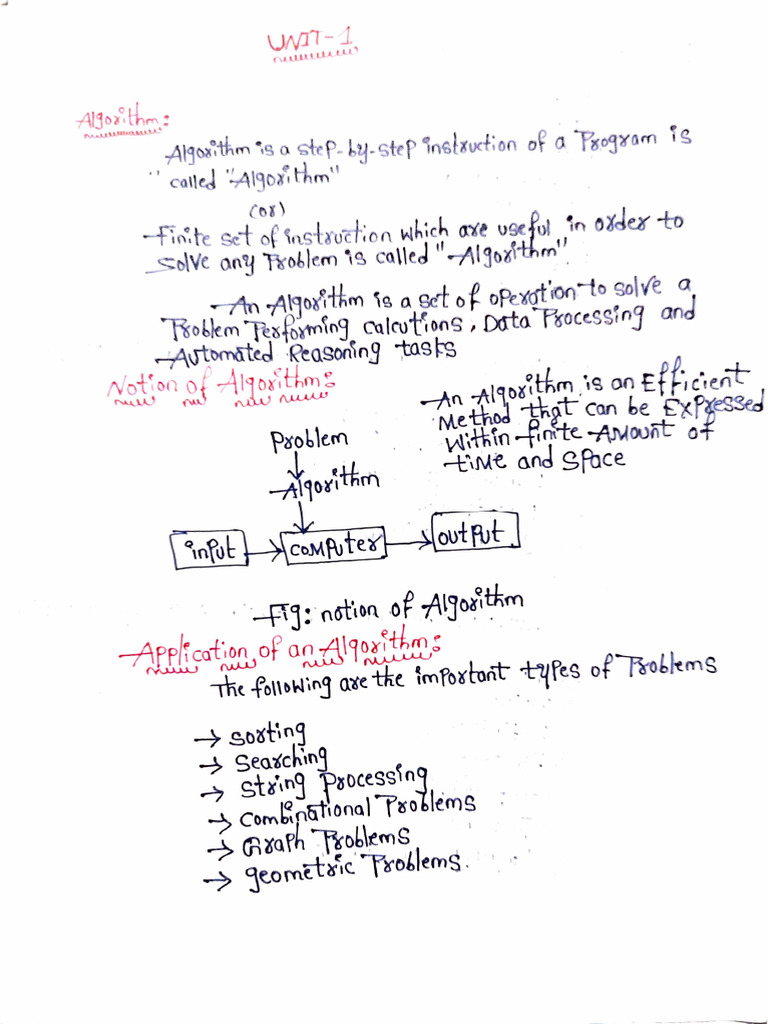 UNIT-1
Algorithm:
Algorithm is a step-by-step instruction of a Program is
" called "Algorithm"
(or)
Finite set of instruction which are useful in order to
solve any Problem is called "Algorithm"
An Algorithm is a set of operation to solve a
Problem Performing calcutions, Data Processing and
Automated Reasoning tasks
Notion of Algorithm:
An Algorithm is an Efficient
Method that can be Expressed
Within finite Amount of
time and space
Problem
Algorithm
input
computer
output
Fig: notion of Algorithm
Application of an Algorithm:
The following are the important types of Problems
→ Sorting
→ Searching
→ String Processing
→ Combinational Problems
→ Graph Problems
→ geometric Problems.